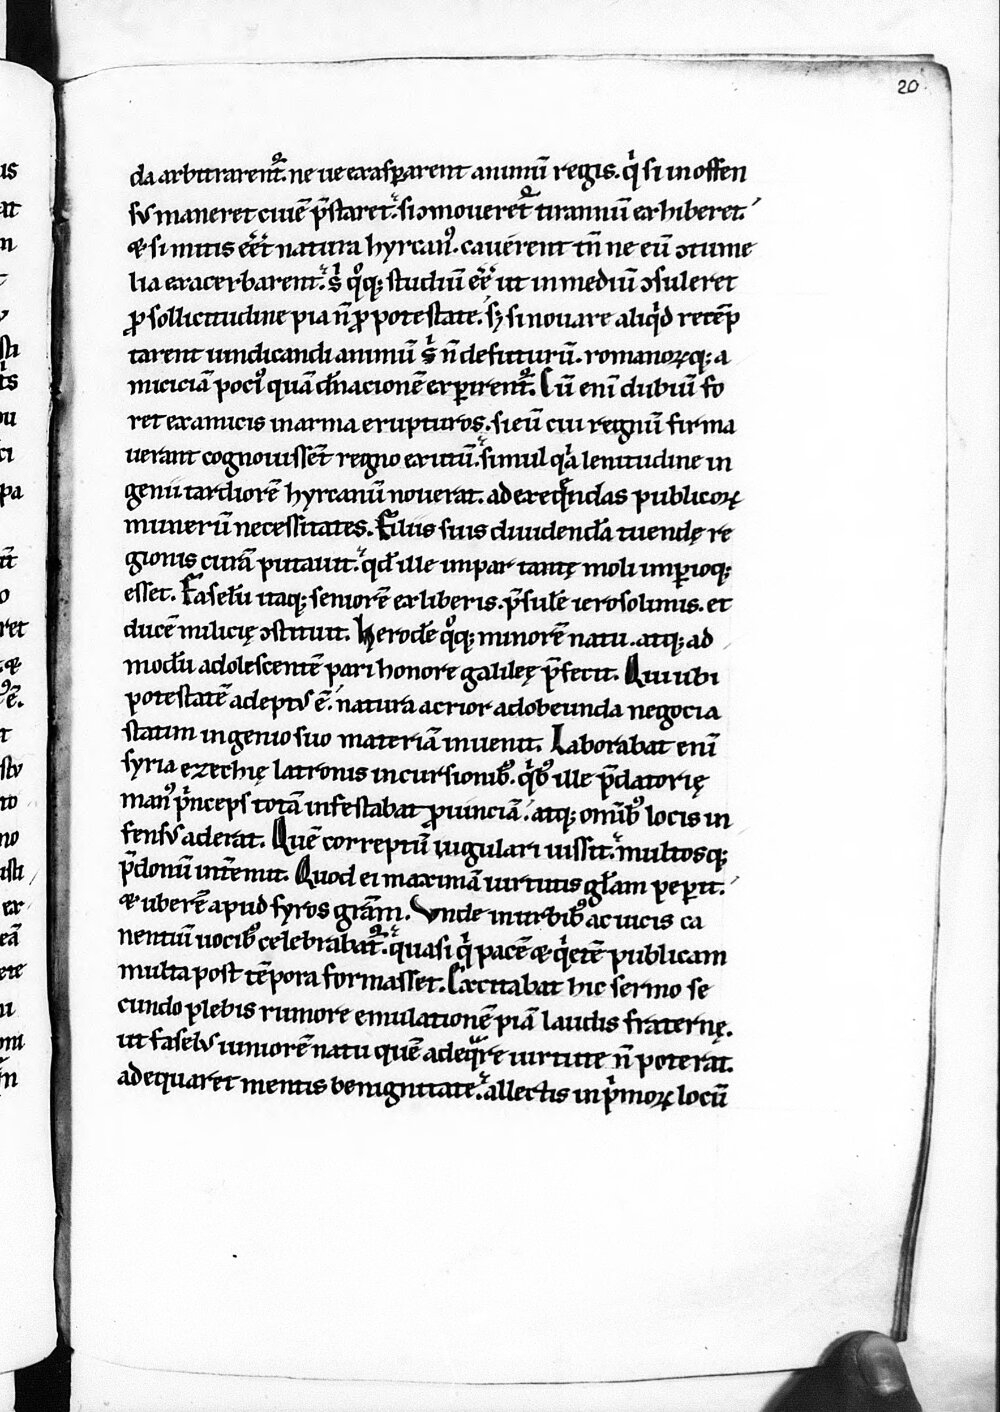 20
da arbitrarent᷑. ne ue exasꝑarent animū regis. qͥ si in offen
sꝰ maneret ciuē p̄staret. si ↄmoueret᷑ tirannū exhiberet.
& si mitis eēt natura hyrcanꝰ. cauerent tn̄ ne eū ↄtume
lia exacerbarent. sͥ qͦq; studiū eēt ut in mediū ↄsuleret
ꝓ sollicitudine pia n̄ ꝓ potestate. sꝫ si nouare aliqͥd retēp
tarent uindicandi animū sͥ n̄ defuturū. romanoꝝq; a
miciciā pociꝰ quā dn̄acionē exꝑirent᷑. Cū eni dubiū fo
ret ex amicis in arma erupturos. si eū cui regnū firma
uerant cognouissēt regno exutū. simul qͥa lenitudine in
genii tardiorē hyrcanū nouerat. ad exeqͤndas publicoꝝ
munerū necessitates. Filiis suis diuidendā tuendę re
gionis curā putauit. qd̄ ille impar tantę moli imꝑioq;
esset. Faselū itaq; seniorē ex liberis. p̄sulē ierosolimis. et
ducē milicię ↄstituit. Herodē qͦq; minorē natu. atq; ad
modū adolescentē pari honore galileę p̄fecit. Qui ubi
potestatē adeptꝰ ē. natura acrior ad obeunda negocia
statim ingenio suo materiā inuenit. Laborabat eni
syria ezechię latronis incursionibꝰ. qͥbꝰ ille p̄datorię
manꝰ pͥnceps totā infestabat ꝓuinciā. atq; omībꝰ locis in
fensꝰ aderat. Quē correptū iugulari iussit. multosq;
p̄donū intēmit. Quod ei maximā uirtutis gl̄am peꝑit.
& uberē apud syros grām. Vnde in urbibꝰ ac uicis ca
nentiū uocibꝰ celebrabat᷑. quasi qͥ pacē & qͥetē publicam
multa post tēpora formasset. Excitabat hic sermo se
cundo plebis rumore emulationē piā laudis fraternę.
ut faselꝰ iuniorē natu quē adeqͣre uirtute n̄ poterat.
adequaret mentis benignitate. allectis in pͥmoꝝ locū